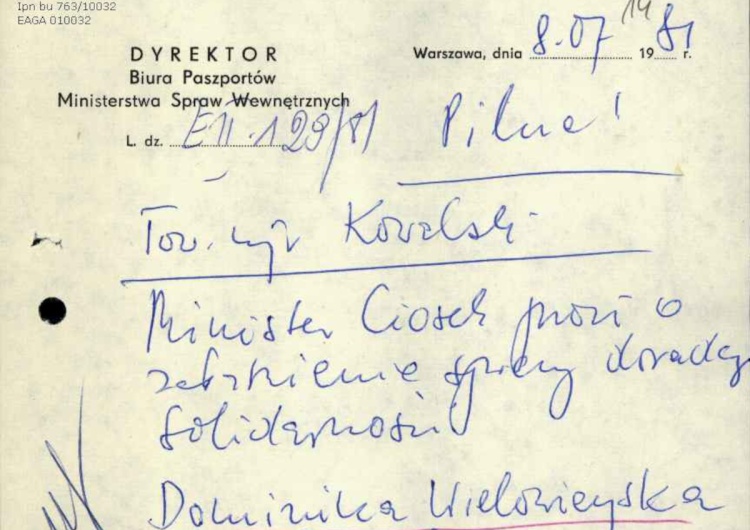 Ipn bu 763/10032
EAGA 010032
14
DYREKTOR
Biura Paszportów
Ministerstwa Spraw Wewnętrznych
Warszawa, dnia 8.07 1981 r.
L. dz. EII-129/81
Pilne!
Tow. mjr Kowalski
Minister Ciosek prosi o
załatwienie sprawy doradcy
Solidarności
Dominika Wielowieyska